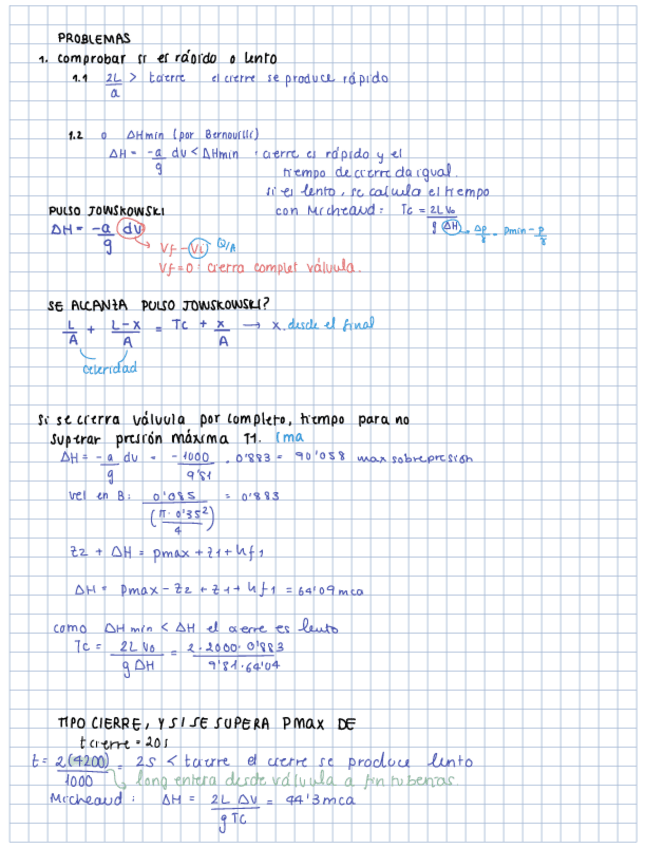 PROBLEMAS
1. comprobar si es rápido o lento
1.1 2L/a > tcierre el cierre se produce rápido
1.2 o ΔHmin (por Bernouilli)
ΔH = -a/g dv < ΔHmin : cierre es rápido y el
tiempo de cierre da igual.
si es lento, se calcula el tiempo
con Micheaud: Tc = 2L Vo / g ΔH → Δp/γ = pmin - p/γ
PULSO JOWSKOWSKI
ΔH = -a/g dv
Vf - Vi Q/A
Vf = 0: cierra complet válvula.
SE ALCANZA PULSO JOWSKOWSKI?
L/A + L-x/A = Tc + x/A → x desde el final
celeridad
si se cierra válvula por completo, tiempo para no
superar presión máxima T1. (ma
ΔH = -a/g dv = -1000/9'81 . 0'883 = 90'058 max sobrepresión
vel en B: 0'085/(π·0'35²/4) = 0'883
z2 + ΔH = pmax + z1 + hf1
ΔH = pmax - z2 + z1 + hf1 = 64'09 mca
como ΔHmin < ΔH el cierre es lento
Tc = 2L Vo / g ΔH = 2·2000·0'883 / 9'81·64'04
TIPO CIERRE, Y SI SE SUPERA PMAX DE
tcierre = 20s
t = 2(4200)/1000 = 2s < tcierre el cierre se produce lento
long entera desde válvula a fin tuberias.
Micheaud: ΔH = 2L ΔV / g Tc = 44'3 mca